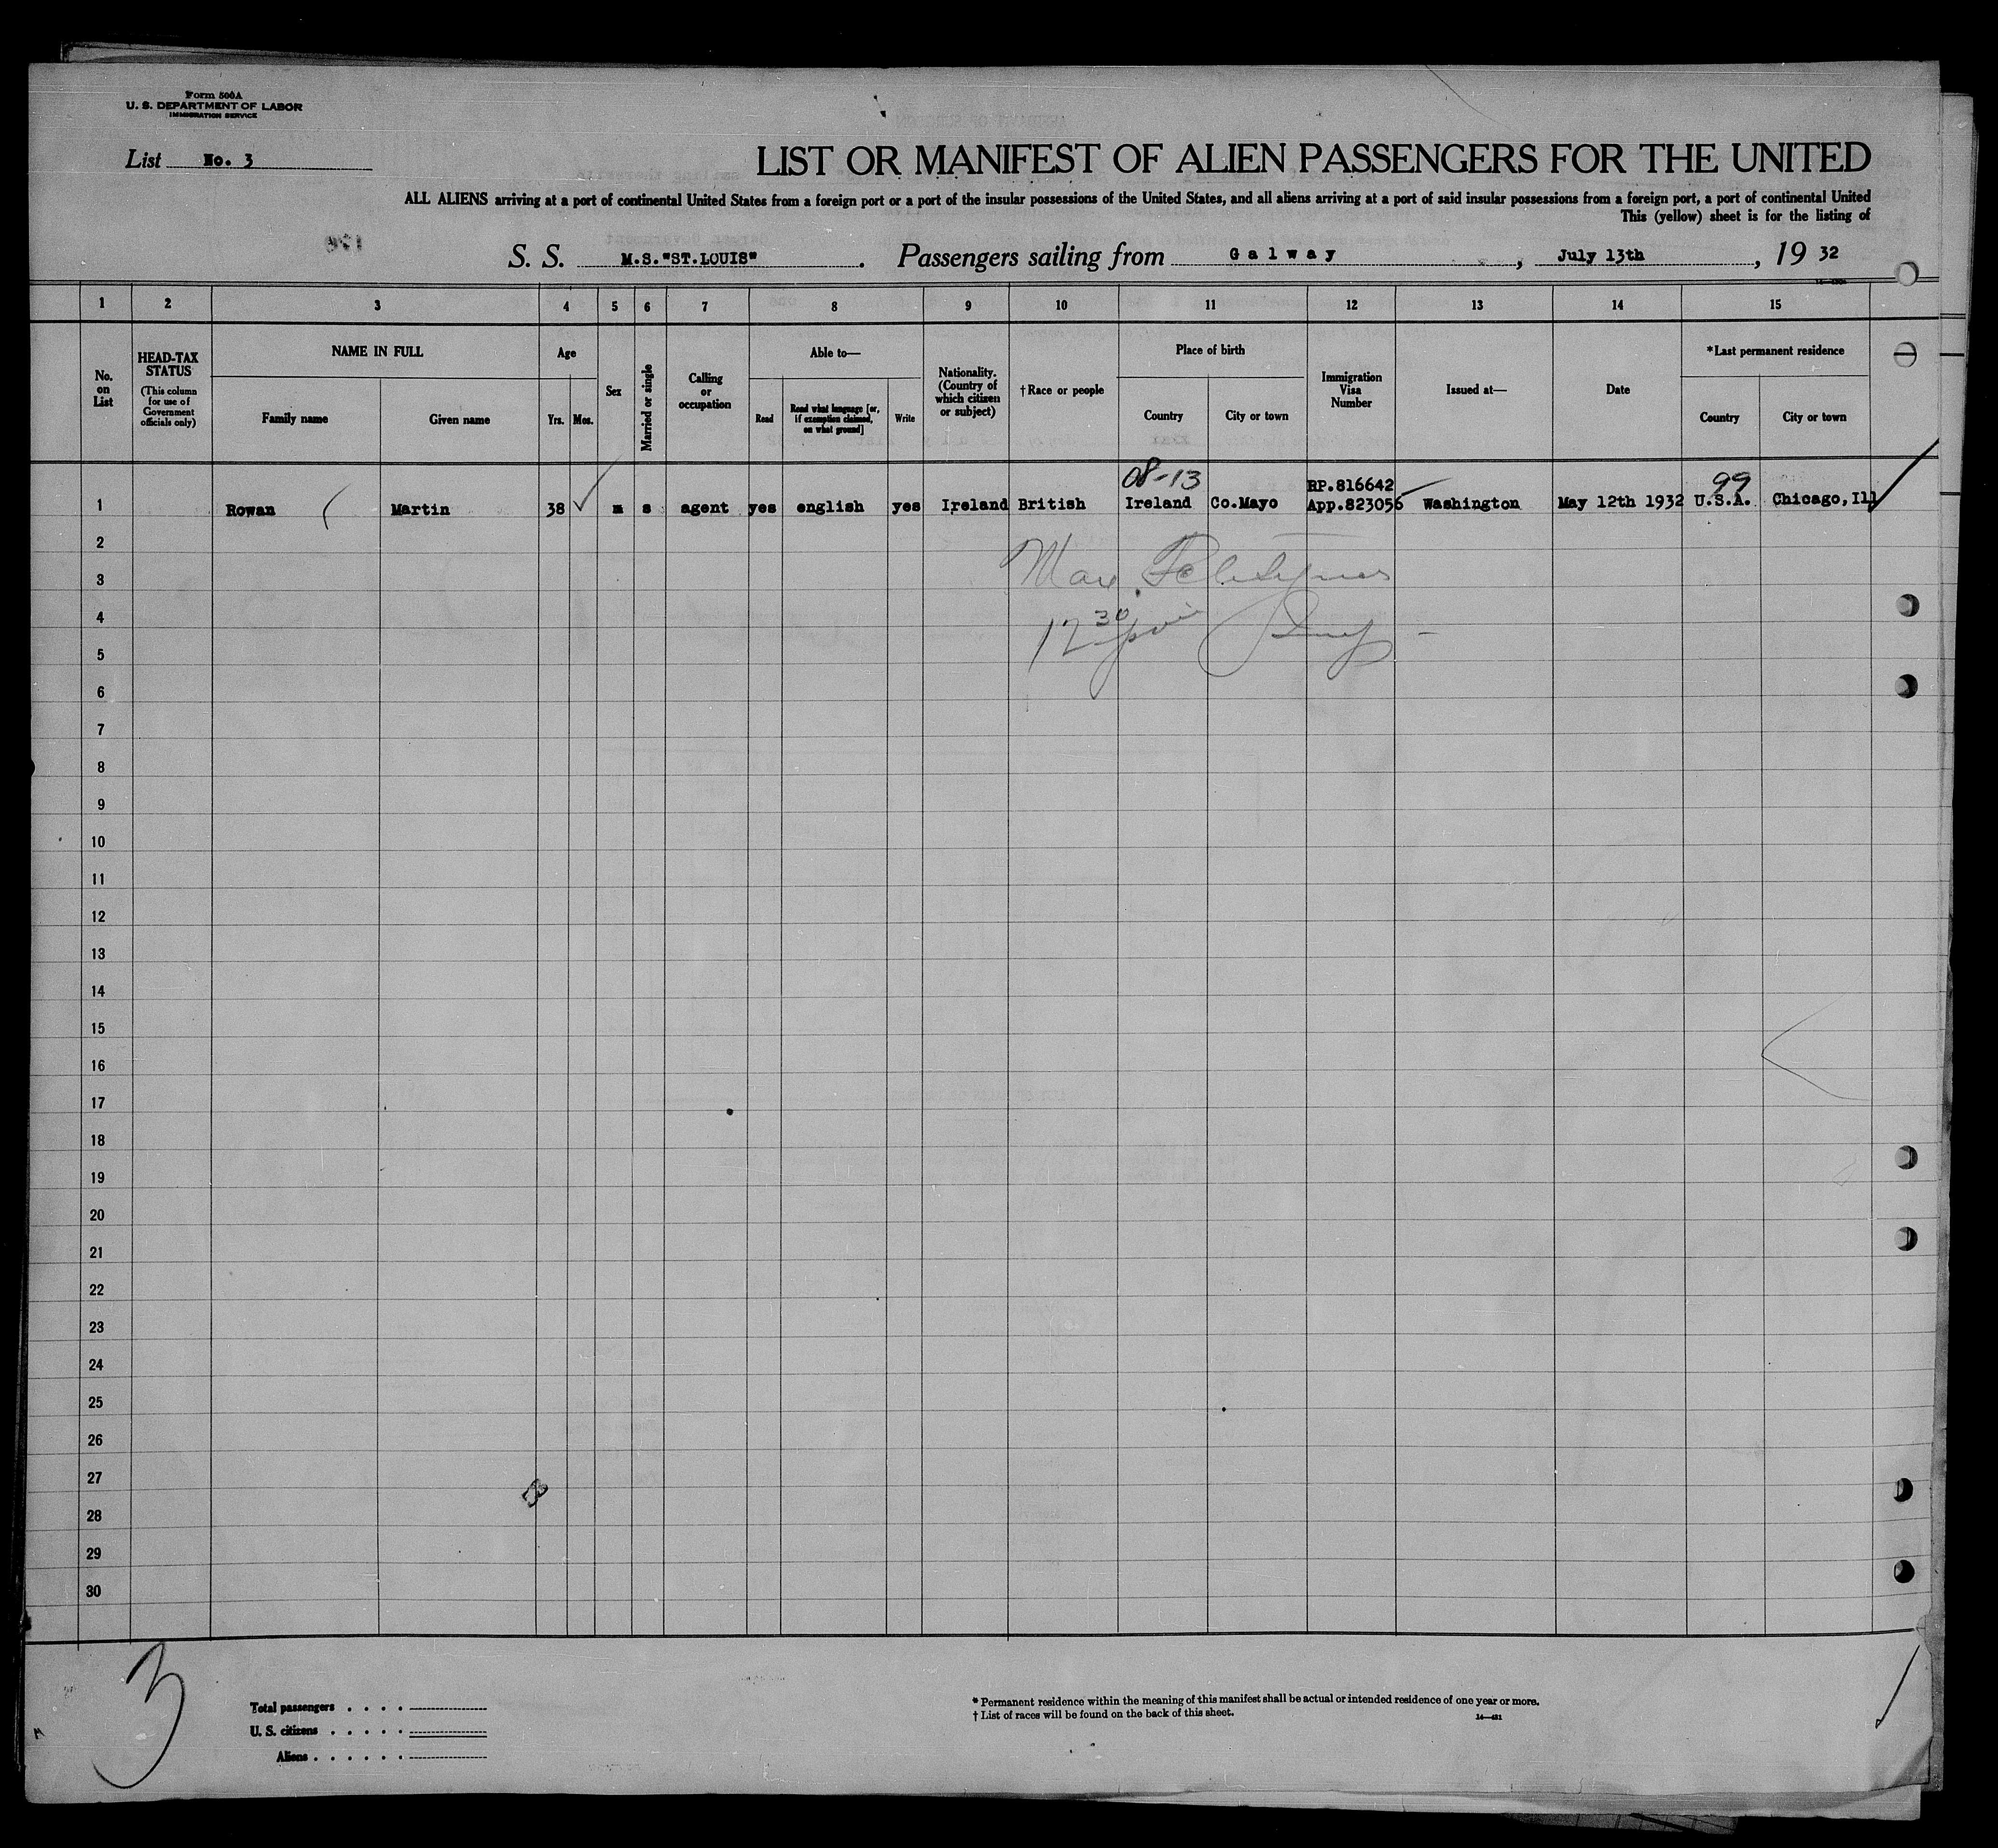 Form 500A
U. S. DEPARTMENT OF LABOR
IMMIGRATION SERVICE
List No. 3
LIST OR MANIFEST OF ALIEN PASSENGERS FOR THE UNITED
ALL ALIENS arriving at a port of continental United States from a foreign port or a port of the insular possessions of the United States, and all aliens arriving at a port of said insular possessions from a foreign port, a port of continental United
This (yellow) sheet is for the listing of
S. S. M.S."ST.LOUIS". Passengers sailing from Galway, July 13th, 19 32
1 2 3 4 5 6 7 8 9 10 11 12 13 14 15
No. on List
HEAD-TAX STATUS
(This column for use of Government officials only)
NAME IN FULL
Family name
Given name
Age
Yrs. Mos.
Sex
Married or single
Calling or occupation
Able to—
Read
Read what language [or, if exemption claimed, on what ground]
Write
Nationality. (Country of which citizen or subject)
†Race or people
Place of birth
Country
City or town
Immigration Visa Number
Issued at—
Date
*Last permanent residence
Country
City or town
08-13
RP.816642
99
1 Rowan Martin 38 m s agent yes english yes Ireland British Ireland Co.Mayo App.823056 Washington May 12th 1932 U.S.A. Chicago,Ill
2
3
12 30
4
5
6
7
8
9
10
11
12
13
14
15
16
17
18
19
20
21
22
23
24
25
26
27
28
29
30
3
Total passengers . . . .
U. S. citizens . . . . .
Aliens . . . . . .
* Permanent residence within the meaning of this manifest shall be actual or intended residence of one year or more.
† List of races will be found on the back of this sheet.